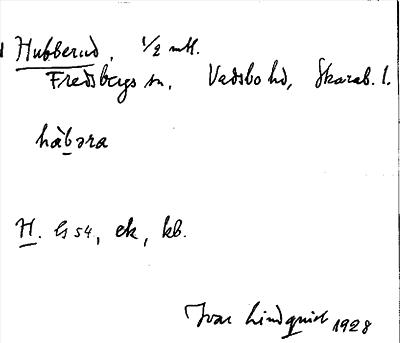 Hubberud, 1/2 mtl.
Fredsbergs sn, Vadsbo hd, Skarab. l.
hàbəra
H. Gs 54, ek, kb.
Ivar Lindquist 1928